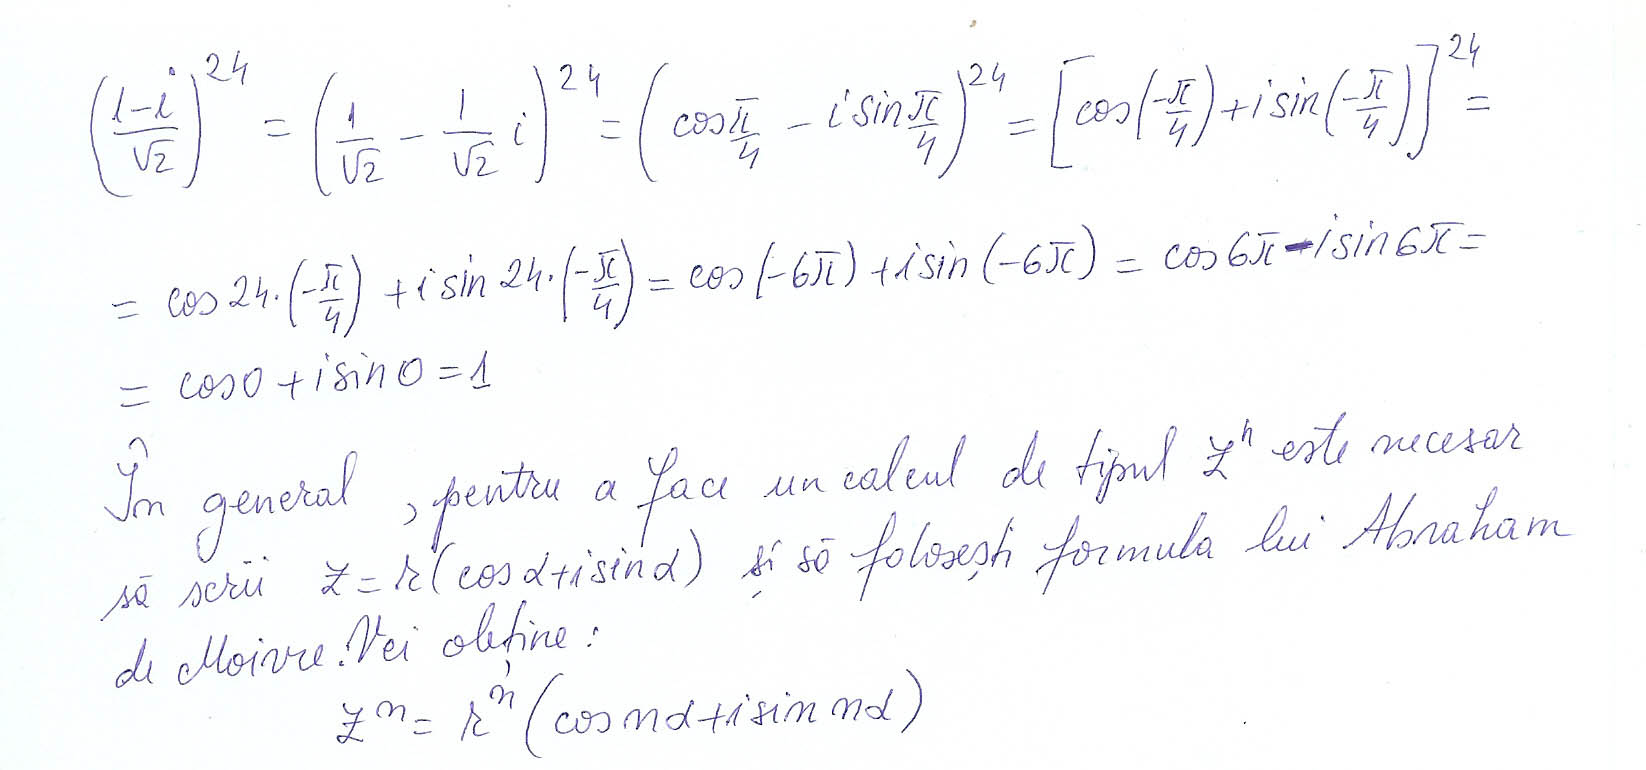 (1-i/√2)^24 = (1/√2 - 1/√2 i)^24 = (cos π/4 - i sin π/4)^24 = [cos(-π/4) + i sin(-π/4)]^24 =
= cos 24·(-π/4) + i sin 24·(-π/4) = cos(-6π) + i sin(-6π) = cos 6π - i sin 6π =
= cos 0 + i sin 0 = 1
În general, pentru a face un calcul de tipul z^n este necesar
să scrii z = r(cos α + i sin α) și să folosești formula lui Abraham
de Moivre. Vei obține:
z^n = r^n (cos nα + i sin nα)